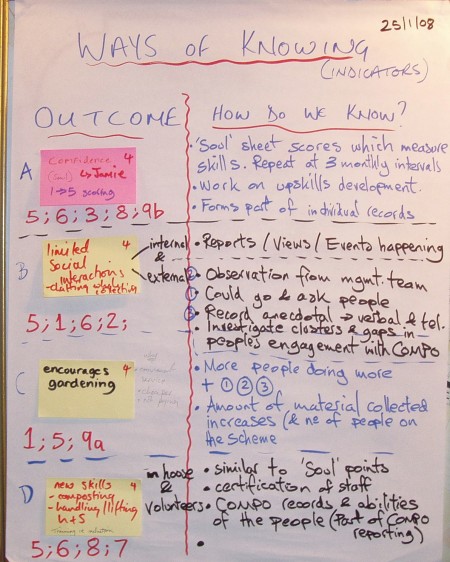 25/1/08
WAYS OF KNOWING
(INDICATORS)
OUTCOME
HOW DO WE KNOW?
A
Confidence 4
(Soul) ↳ Jamie
1→5 scoring
5; 6; 3; 8; 9b
• 'Soul' sheet scores which measure
skills. Repeat at 3 monthly intervals
• Work on upskills development.
• Forms part of individual records
B
limited 4
Social
interactions
- chatting whilst
collecting
internal
&
external
5; 1; 6; 2;
• Reports / Views / Events happening
② Observation from mgmt. team
① Could go & ask people
③ Record anecdotal → verbal & tel.
• Investigate clusters & gaps in
people's engagement with COMPO
C
encourages 4
gardening
1; 5; 9a
• More people doing more
+ ① ② ③
• Amount of material collected
increases (& no of people on
the scheme
D
new skills 4
- composting
- handling / lifting
H + S
in house
&
volunteers
5; 6; 8; 7
• similar to 'Soul' points
• certification of staff
• COMPO records & abilities
of the people (Part of COMPO
reporting)
•